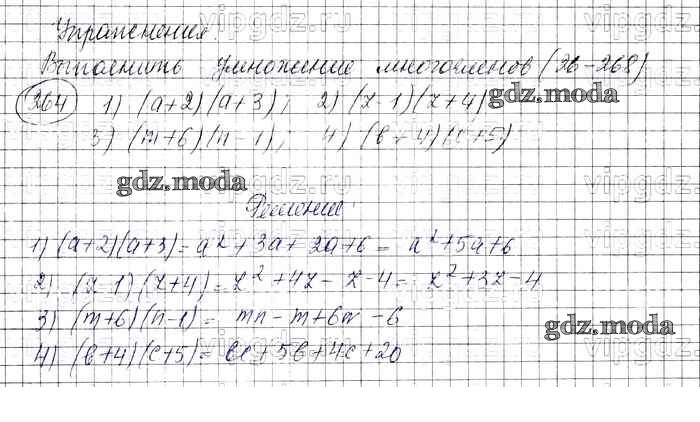 Упражнения
Выполнить умножение многочленов (26-268)
264 1) (a+2)(a+3); 2) (z-1)(z+4)
3) (m+6)(n-1); 4) (b+4)(c+5)
Решение:
1) (a+2)(a+3)=a²+3a+2a+6= a²+5a+6
2) (z-1)(z+4)=z²+4z-z-4= z²+3z-4
3) (m+6)(n-1)= mn-m+6n-6
4) (b+4)(c+5)= bc+5b+4c+20
gdz.moda
gdz.moda
gdz.moda
vipgdz.ru